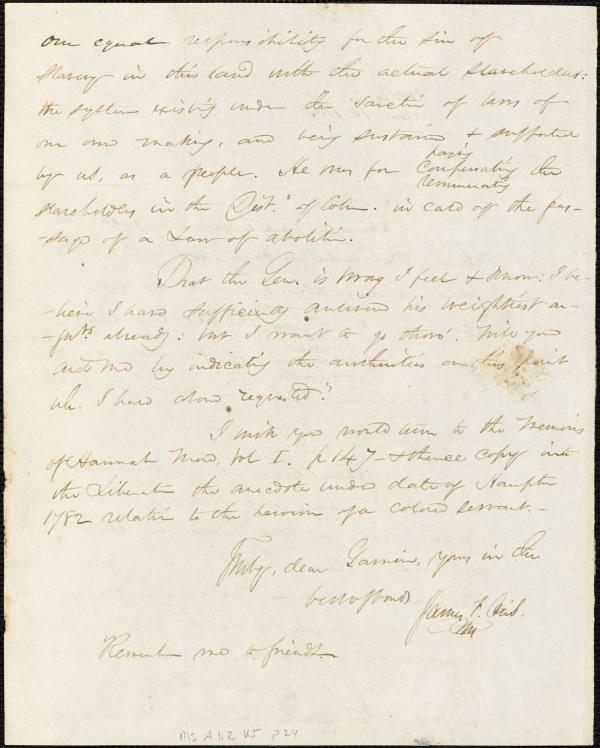 our equal responsibility for the sin of
slavery in this land with the actual slaveholders:
the system existing under the sanction of laws of
our own making, and being sustained & supported
by us, as a people. He was for
paying
compensating the
remunerating
slaveholders in the Dist. of Colum. in case of the pas-
-sage of a Law of abolition.
That the Gen. is wrong I feel & know: I be-
-lieve I have sufficiently answered his weightiest ar-
-guts already: but I want to go thoro'. Will you
aid me by indicating the authorities on this point
wh. I have above requested?
I wish you would turn to the Memoirs
of Hannah More, Vol I. p 147 - & thence copy into
the Liberator the anecdote under date of Hampton
1782 relative to the heroism of a colored servant.-
Truly, dear Garrison, yours in the
best of bonds
James F. Otis.
Remember me to friends.
Ms A 1.2 V5 p 24